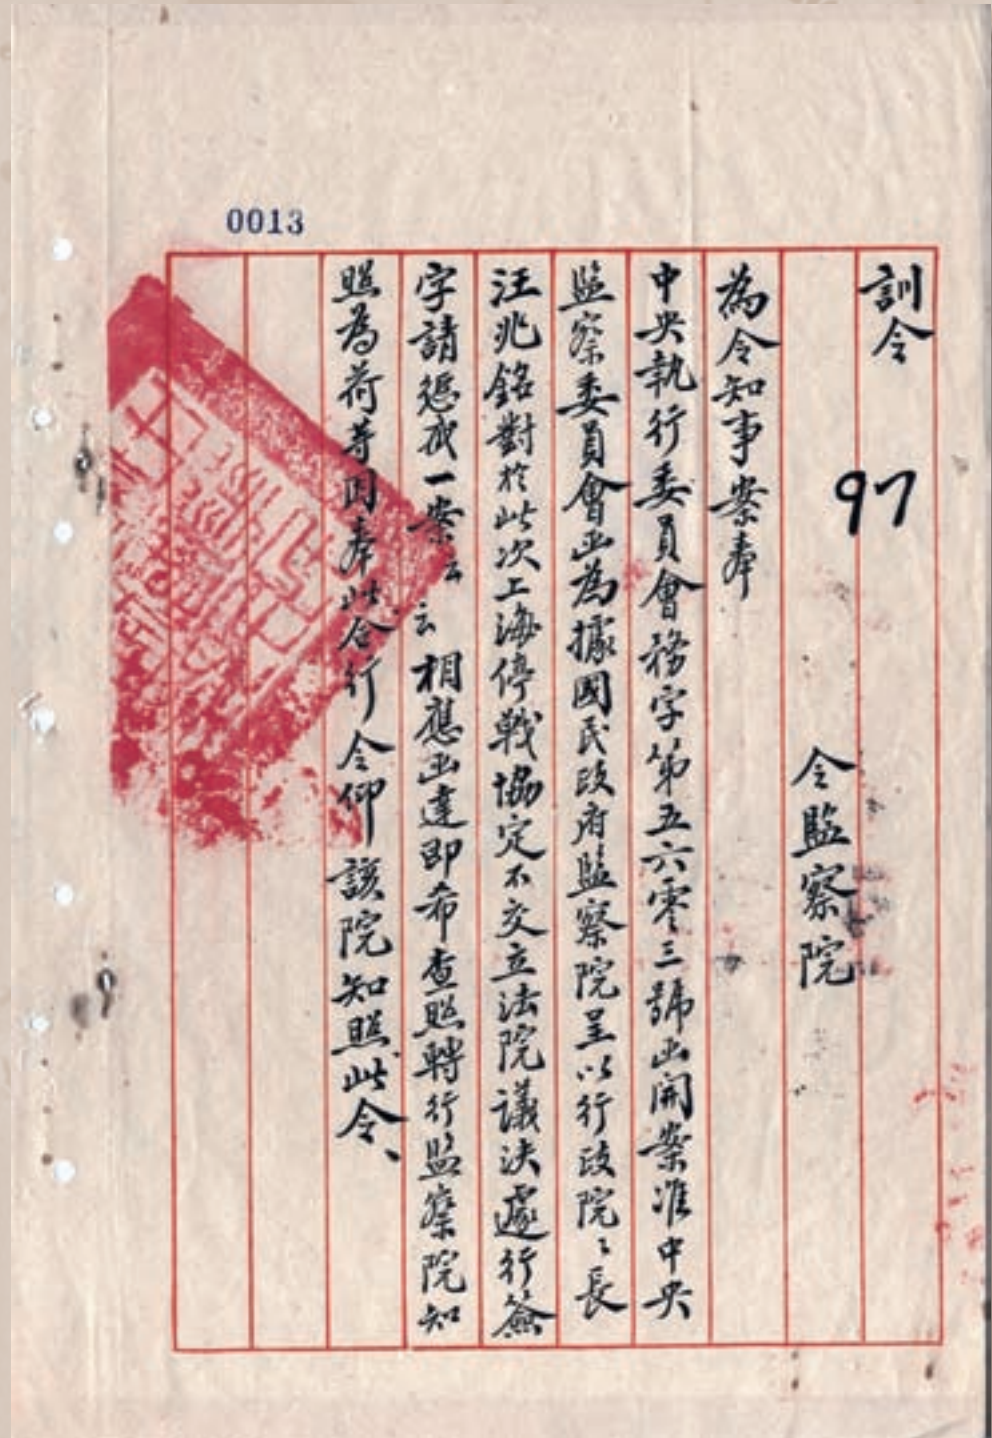 0013
訓令
97
令監察院
為令知事案奉
中央執行委員會務字第五六零三號函開案准中央
監察委員會函為據國民政府監察院呈以行政院〻長
汪兆銘對於此次上海停戰協定不交立法院議決遽行簽
字請懲戒一案云云相應函達即希查照轉行監察院知
照為荷等因奉此合行令仰該院知照此令、